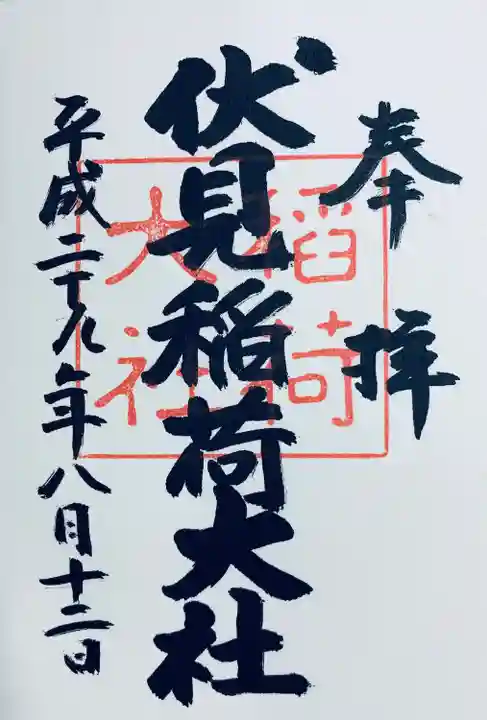 奉拝
伏見稲荷大社
平成二十九年八月十二日
稲荷
大社